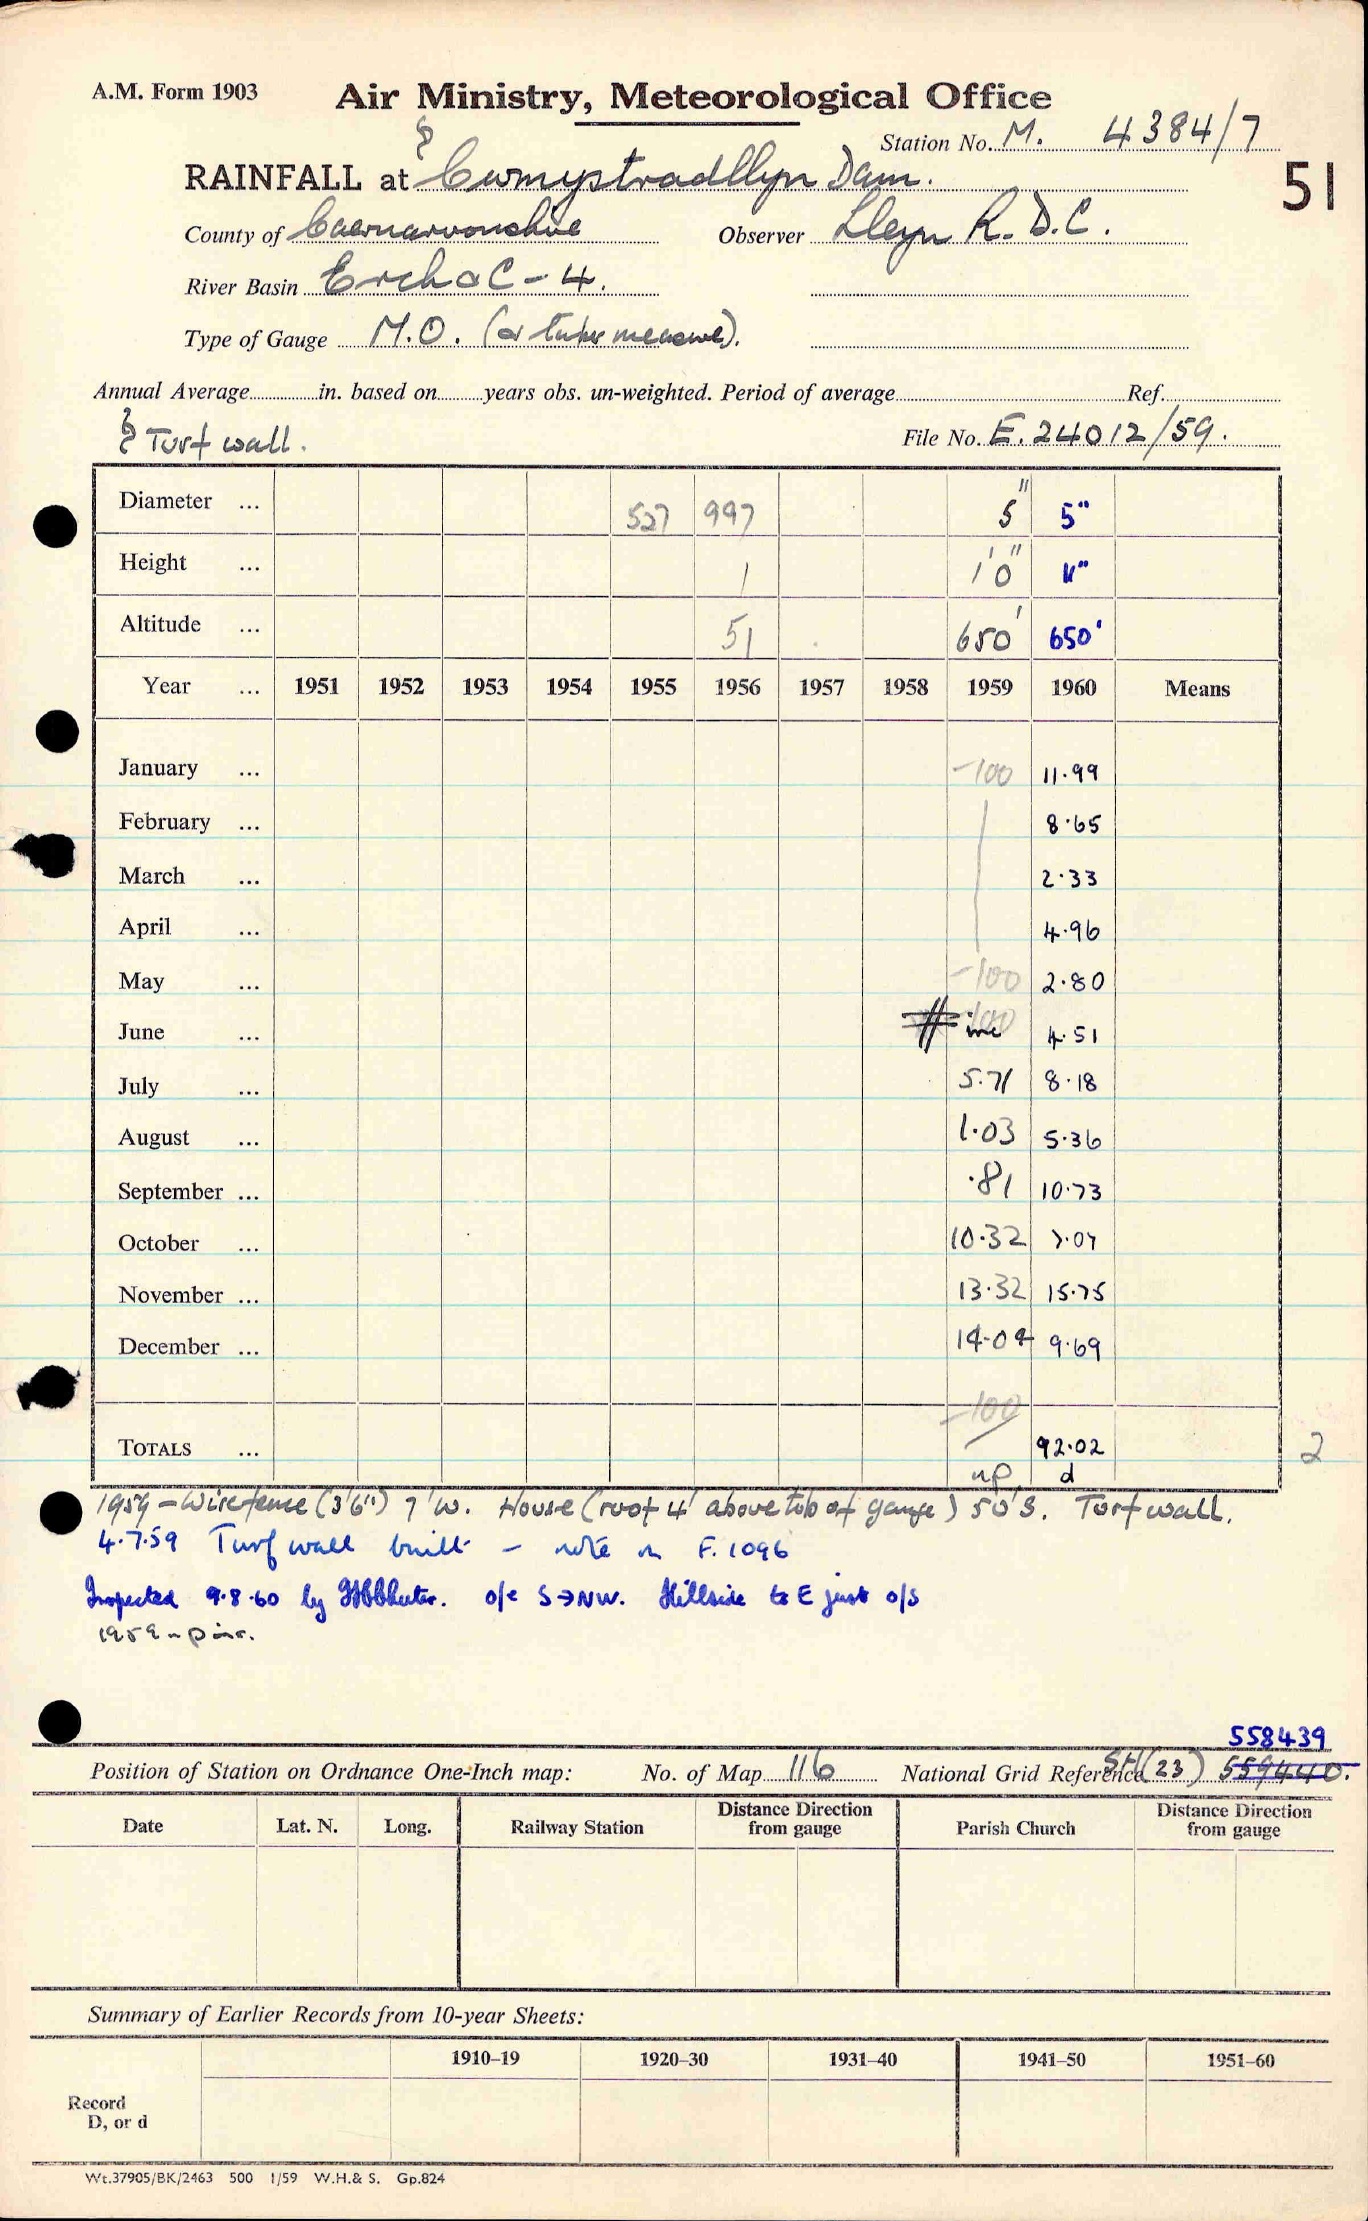 A.M. Form 1903
Air Ministry, Meteorological Office
Station No. M. 4384/7
51
RAINFALL at Cwmystradllyn Dam.
County of Caernarvonshire Observer Lleyn R.D.C.
River Basin Erch &c - 4.
Type of Gauge M.O. (
Annual Average in. based on years obs. un-weighted. Period of average Ref.
Turf wall. File No. E.24012/59.
Diameter ... 527 997 5" 5"
Height ... 1 1'0" 11"
Altitude ... 51 650' 650'
Year ... 1951 1952 1953 1954 1955 1956 1957 1958 1959 1960 Means
January ... -100 11.99
February ... 8.65
March ... 2.33
April ... 4.96
May ... -100 2.80
June ... # inc 4.51
July ... 5.71 8.18
August ... 1.03 5.36
September ... .81 10.73
October ... 10.32 7.07
November ... 13.32 15.75
December ... 14.04 9.69
-100
TOTALS ... 92.02 2
np d
1959 - Wire fence (3'6") 7'W. House (roof 4' above top of gauge) 50'S. Turf wall.
4.7.59 Turf wall built - note on F.1096
Inspected 9.8.60 by o/e S→NW. Hillside to E just o/s
1959
558439
Position of Station on Ordnance One-Inch map: No. of Map 116 National Grid Reference SH(23) 559440.
Date Lat. N. Long. Railway Station Distance Direction from gauge Parish Church Distance Direction from gauge
Summary of Earlier Records from 10-year Sheets:
1910–19 1920–30 1931–40 1941–50 1951–60
Record
D, or d
Wt.37905/BK/2463 500 1/59 W.H.& S. Gp.824